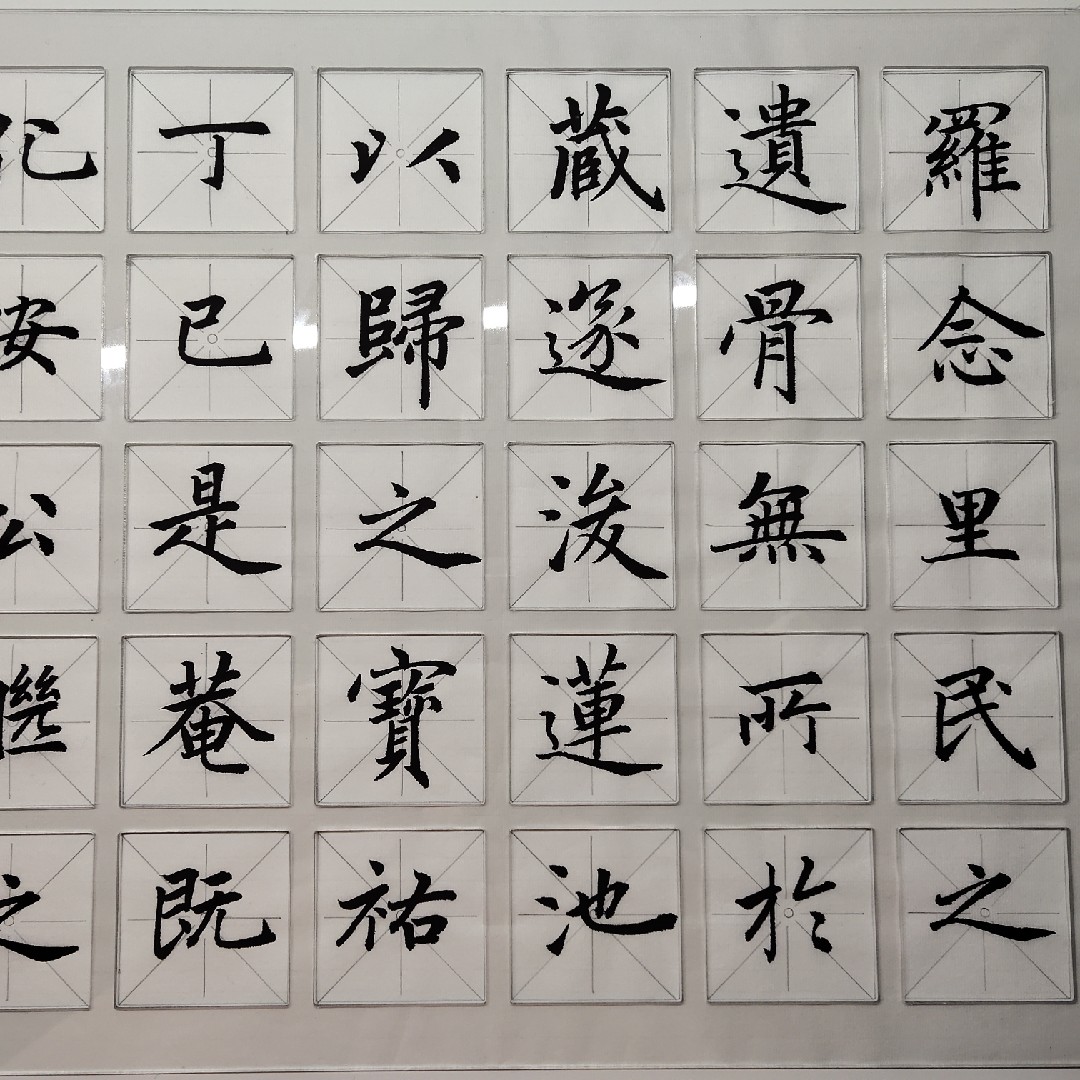 羅念里民之
遺骨無所於
蔵遂浚蓮池
以歸之寶祐
丁巳是菴既
安公之